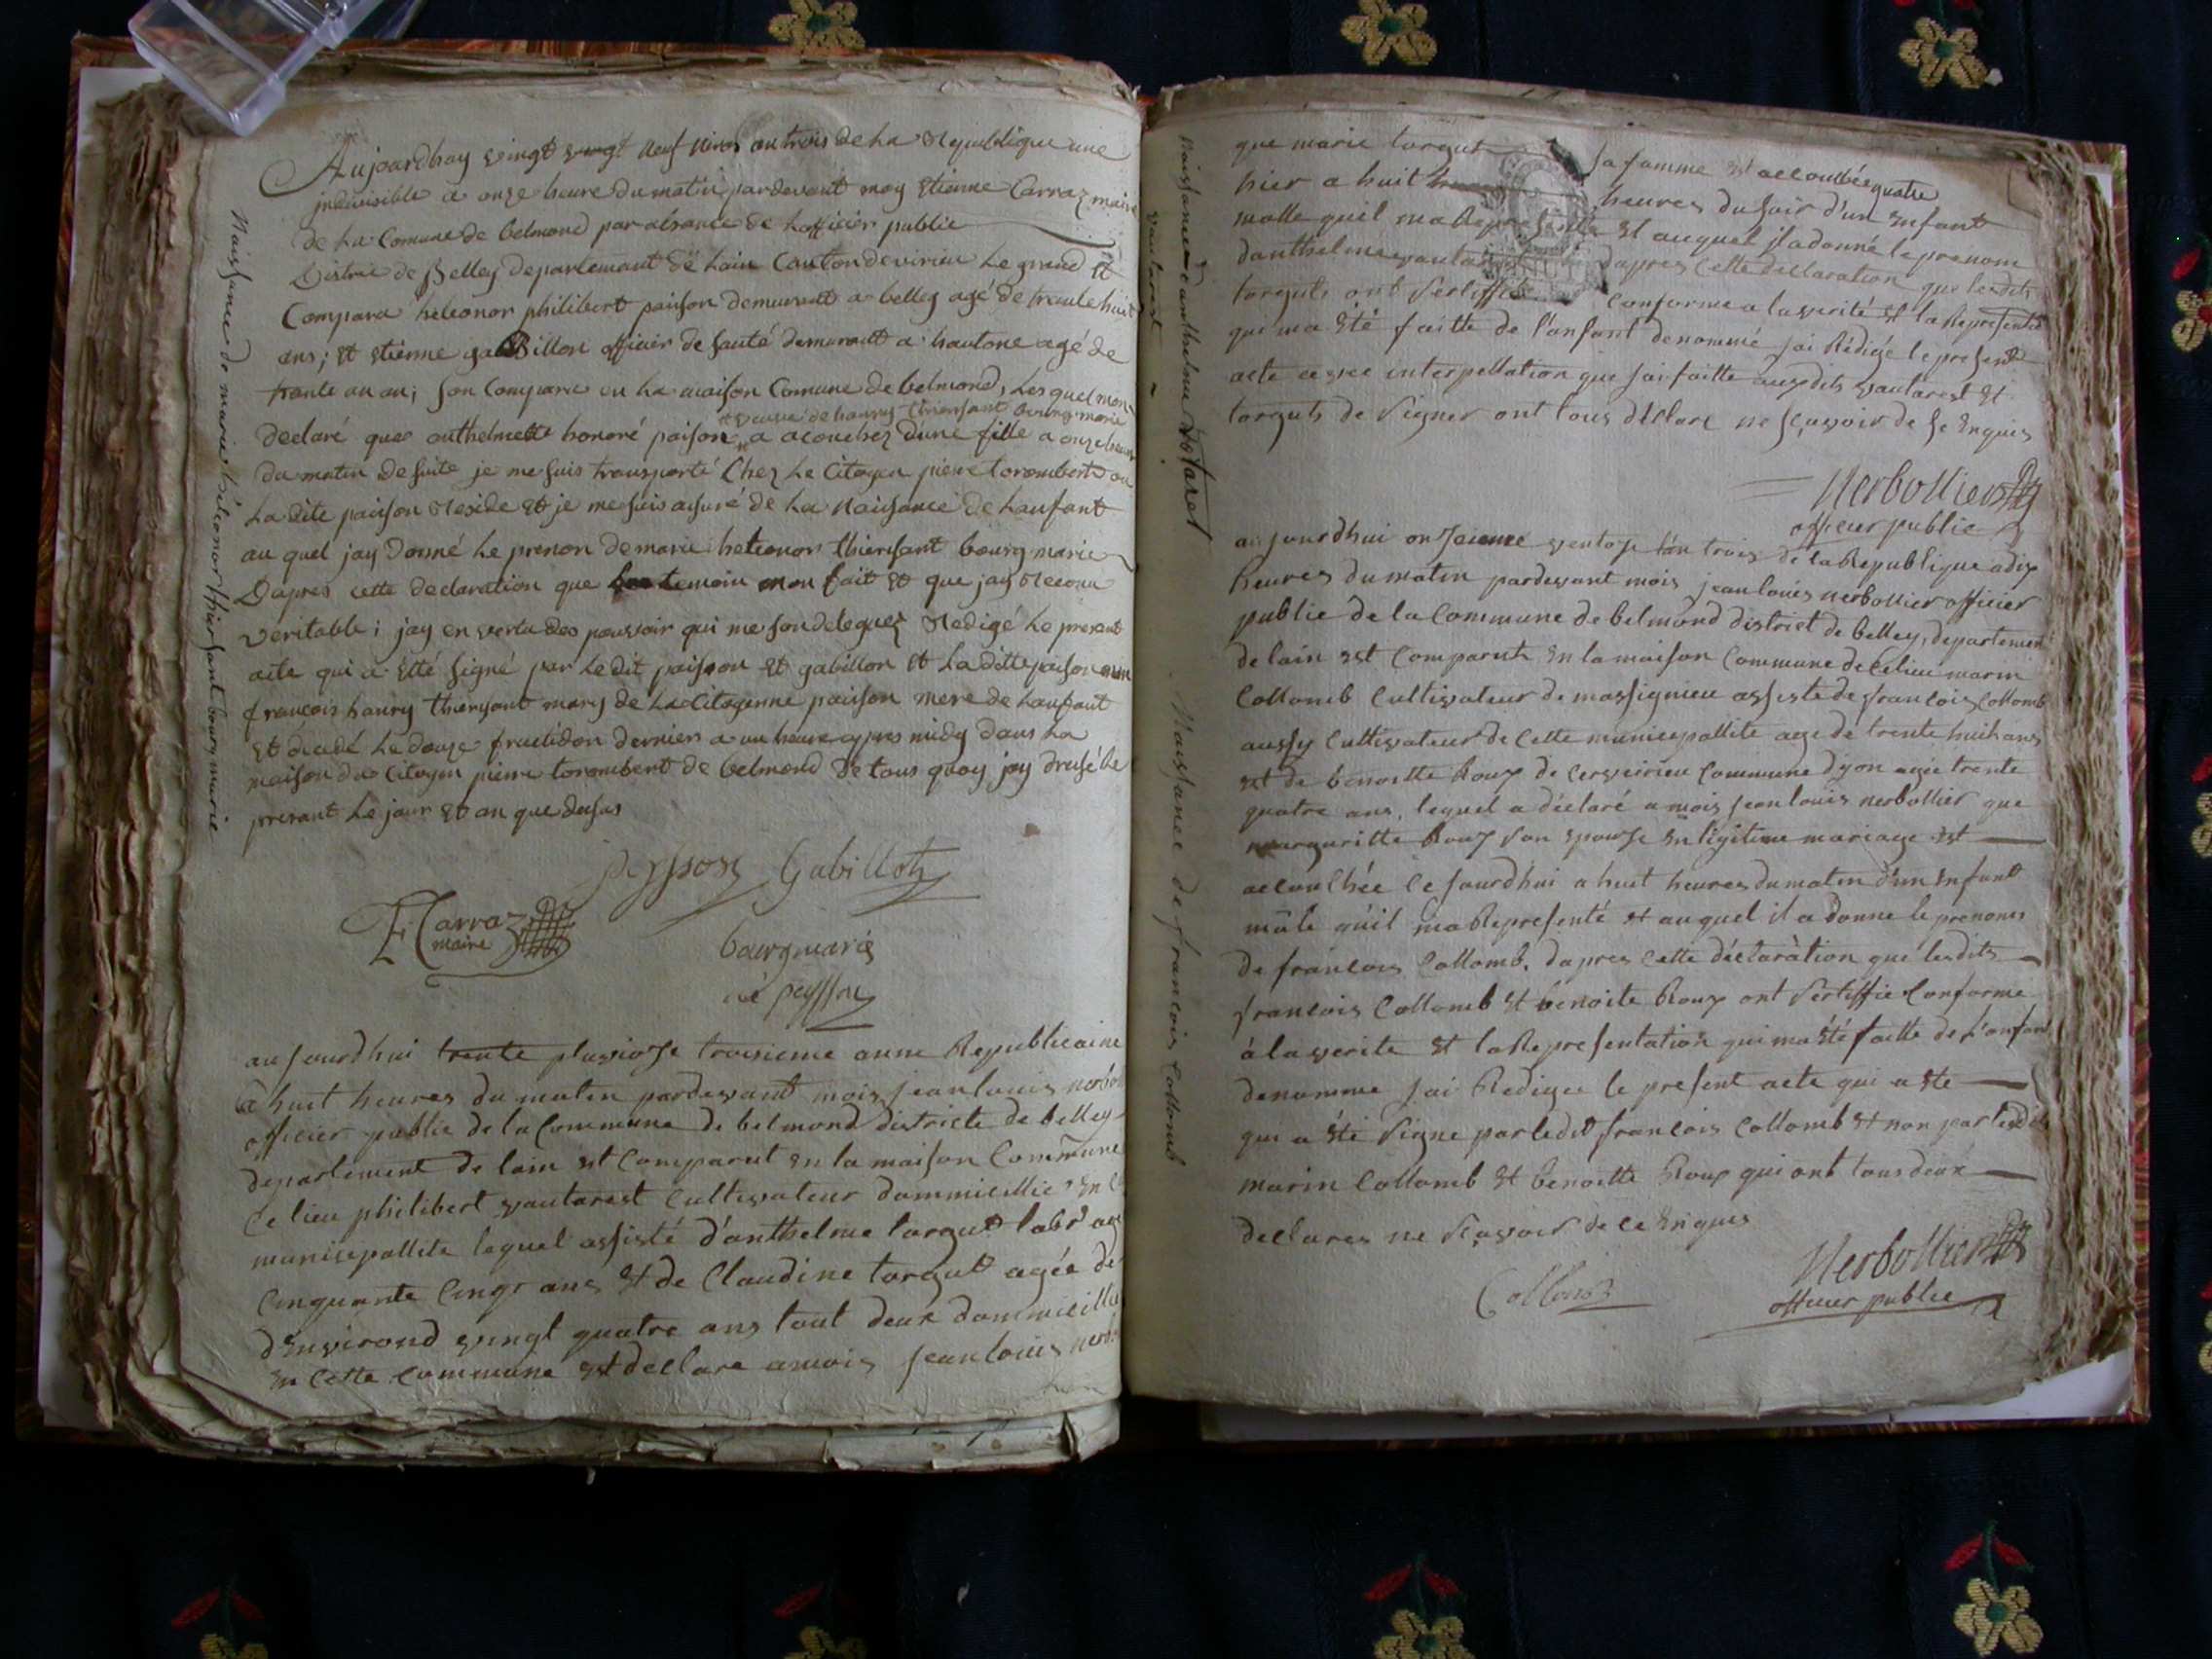 Naissance de marie heleonor thiersant bourg marie
Aujourdhuy vingt vingt neuf nivos an trois de La Republique une
indivisible a onze heure du matin pardevant moy Etienne Carraz maire
de La Comune de belmond par absance de Lofficier public
District de Belley departemant de Lain Canton de virieu Le grand Et
Comparu heleonor philibert paison demeurant a belley agé de trente huit
ans; Et Etienne gabillon officier de santé demurant a hautone agé de
trante un an; son Comparu en La maison Comune de belmond, Les quel mon
veuve de hanry thiersant bourg marie
declaré que anthelmette honoré paison a acouchez d'une fille a onze heure
du matin de suite je me suis transporté Chez Le Citoyen pierre torombert ou
La dite paison Reside Et je me suis assuré de La Naissance de Lanfant
au quel jay donné Le prenon de marie heleonor thiersant bourg marie
D'apres cette declaration que Les temoin mon fait Et que jay Reconu
veritable; jay en vertu des pouvoir qui me son deleguez Redigé Le presant
acte qui a Etté signé par Le dit paison Et gabillon Et La ditte paison
francois hanry thiersant mary de La Citoyenne paison mere de Lanfant
Et decedé Le douze fructidor dernier a un heure apres midy dans La
maison du Citoyen pierre torombert de belmond De tous quoy jay dressé Le
presant Le jour Et an que dessus
peysson Gabillon
E Carraz
maire
bourgmarie
né peysson
aujourdhui trente pluviose troisieme anne Republicaine
a huit heures du maten pardevant mois jean louis nerbo
officier public de la Commune de belmond districte de belley
departement de lain est Comparut en la maison Commune
de lieu philibert vautarest Cultivateur dommicillié en
municipallite lequel assisté d'anthelme torgut labr age
Cinquante Cinqr ans Et de Claudine torgut agée de
d'environd vingt quatre ans tout deux dommicillie
en Cette Commune Et declare a mois jean louis nerb
Naissance d'anthelme Votaret
vautarest
que marie torgut sa famme Est accouchée
quatre
hier a huit heures du soir d'un Enfant
malle quil ma Representé Et auquel jl a donné le prenom
d'anthelme vautarest dapres Cette declaration que lesdits
torguts ont Sertiffié Conforme a la verité Et la Representa
qui ma Eté faitte de l'anfant denommé jai Rédigée le present
acte avec interpellation que jai faitte auxdits vautarest Et
torguts de Signer ont tous déclare ne sçavoir de se Enquis
Nerbollier
officier public
Naissance de francois Collomb
aujourdhui onzieme ventose l'an trois de la Republique a dix
heures du matin pardevant mois jean louis nerbollier officier
public de la Commune de belmond district de belley, departement
de lain est Comparut En la maison Commune de Ce lieu marin
Collomb Cultivateur de massignieu assiste de francois Collomb
aussy Cultivateur de Cette municipallite age de trente huit ans
Et de benoitte Roux de Cerveirieu Commune dyon agée trente
quatre ans, lequel a déclaré a mois jean louis nerbollier que
marguritte Roux son epouse En ligitime mariage Est
accouchée Ce jourdhui a huit heures du maten d'un Enfant
mâle quil ma Representé Et auquel il a donne le prenoms
de francois Collomb, dapres Cette déclaration que lesdits
francois Collomb Et benoite Roux ont Sertiffie Conforme
à la verite Et la Representation qui ma Eté faitte de l'anfant
denomme jai Redigee le present acte qui a Ete
qui a Eté Signe par ledit francois Collomb Et non par lesdits
marin Collomb Et benoitte Roux qui ont tous deux
declares ne Sçavoir de ce Enquis
Collomb
Nerbollier
officier public